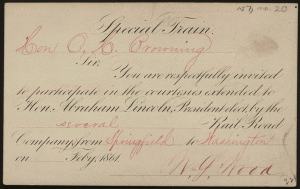 Special Train.
Hon O. H. Browning
Sir.
You are respectfully invited
to participate in the courtesies extended to
Hon. Abraham Lincoln, President elect, by the
several Rail Road
Company, from Springfield to Washington
on Feby. 1861.
W. S. Wood